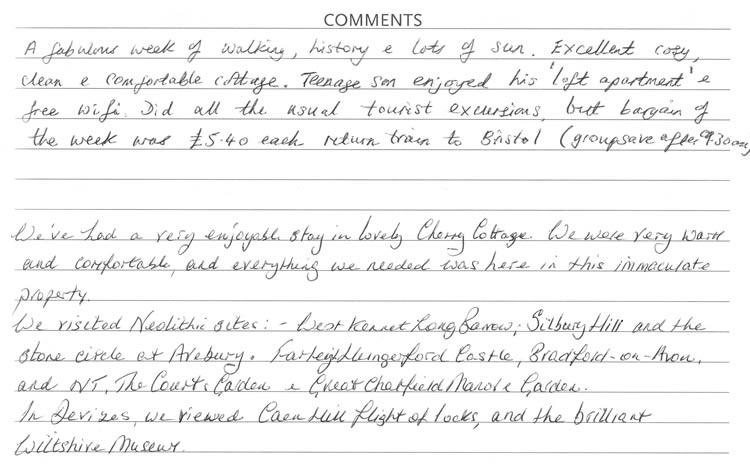 COMMENTS
A fabulous week of walking, history & lots of sun. Excellent cosy,
clean & comfortable cottage. Teenage son enjoyed his 'loft apartment' &
free wifi. Did all the usual tourist excursions, but bargain of
the week was £5.40 each return train to Bristol (groupsave after 9.30am)
We've had a very enjoyable stay in lovely Cherry Cottage. We were very warm
and comfortable, and everything we needed was here in this immaculate
property.
We visited Neolithic sites: - West Kennet Long Barrow, Silbury Hill and the
stone circle at Avebury. Farleigh Hungerford Castle, Bradford-on-Avon,
and NT, The Courts Garden & Great Chalfield Manor & Garden.
In Devizes, we viewed Caen Hill flight of locks, and the brilliant
Wiltshire Museum.